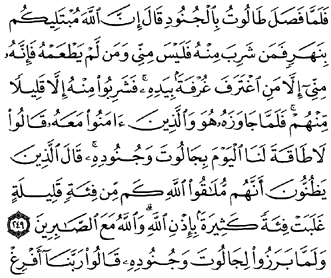 فَلَمَّا فَصَلَ طَالُوتُ بِالْجُنُودِ قَالَ إِنَّ اللَّهَ مُبْتَلِيكُم
بِنَهَرٍ فَمَن شَرِبَ مِنْهُ فَلَيْسَ مِنِّي وَمَن لَّمْ يَطْعَمْهُ فَإِنَّهُ
مِنِّي إِلَّا مَنِ اغْتَرَفَ غُرْفَةً بِيَدِهِ ۚ فَشَرِبُوا مِنْهُ إِلَّا قَلِيلًا
مِّنْهُمْ ۚ فَلَمَّا جَاوَزَهُ هُوَ وَالَّذِينَ ءَامَنُوا مَعَهُ قَالُوا
لَا طَاقَةَ لَنَا الْيَوْمَ بِجَالُوتَ وَجُنُودِهِ ۚ قَالَ الَّذِينَ
يَظُنُّونَ أَنَّهُم مُّلَاقُوا اللَّهِ كَم مِّن فِئَةٍ قَلِيلَةٍ
غَلَبَتْ فِئَةً كَثِيرَةً بِإِذْنِ اللَّهِ ۗ وَاللَّهُ مَعَ الصَّابِرِينَ ٢٤٩
وَلَمَّا بَرَزُوا لِجَالُوتَ وَجُنُودِهِ قَالُوا رَبَّنَا أَفْرِغْ